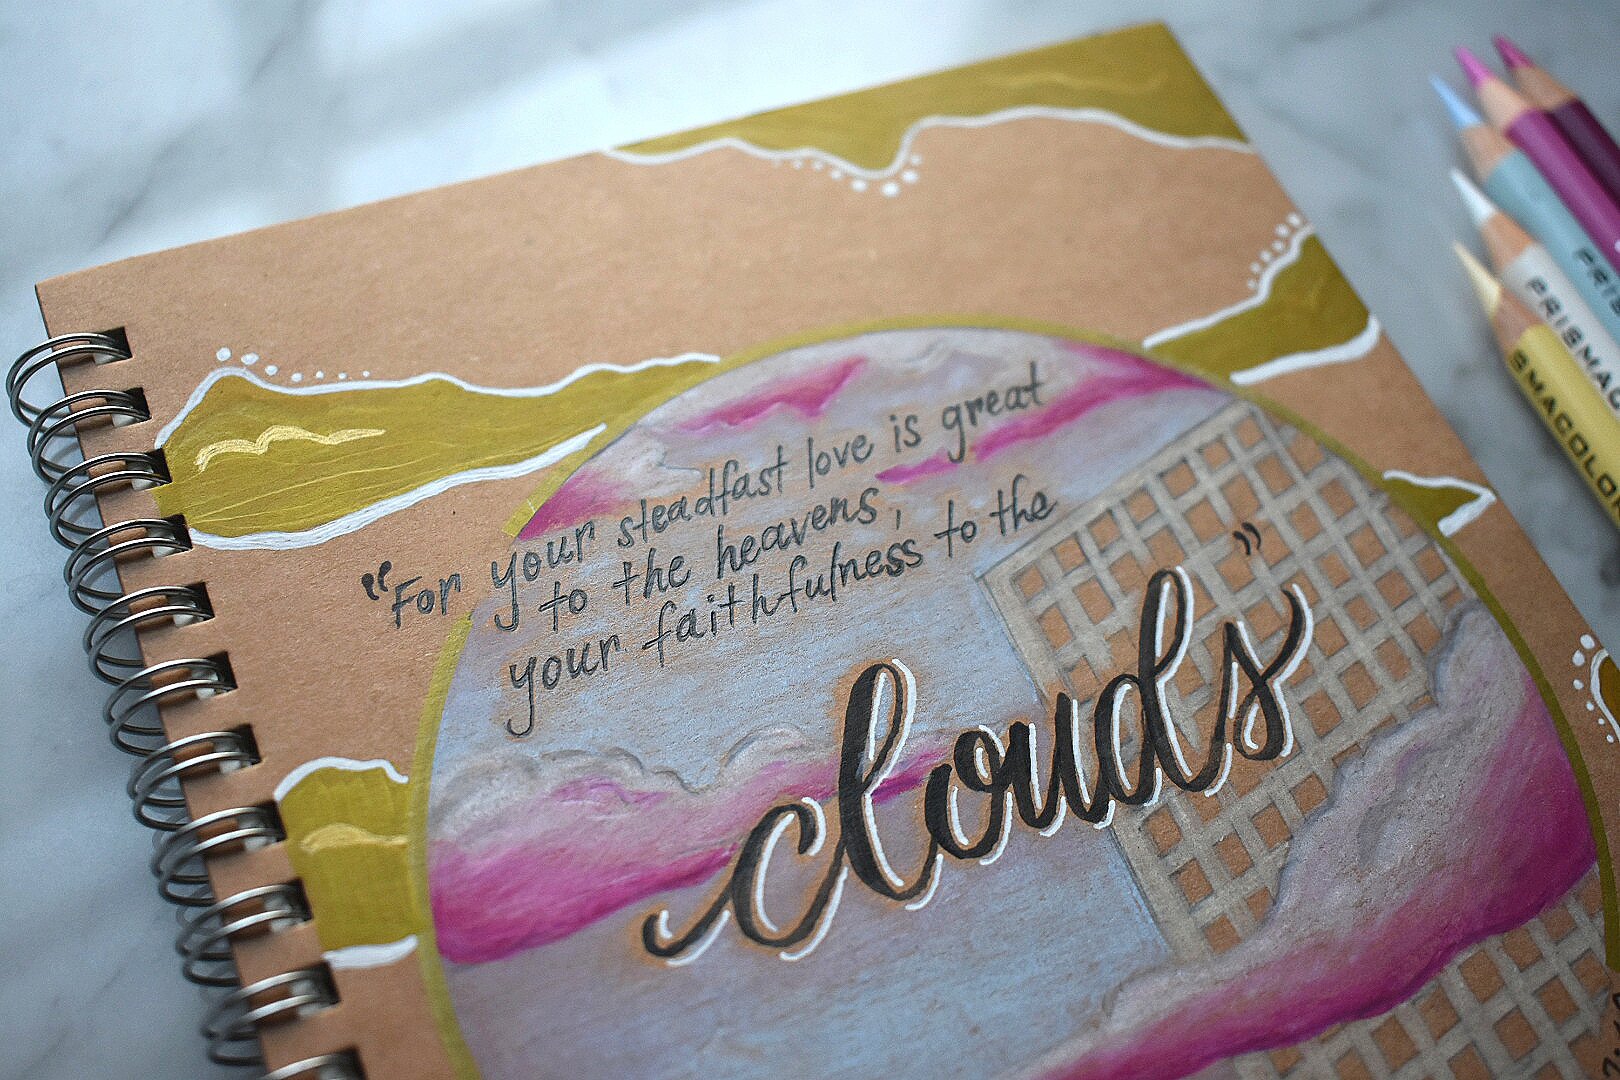 "For your steadfast love is great
to the heavens,
your faithfulness to the
clouds"
PRISMAC
SMACOLO